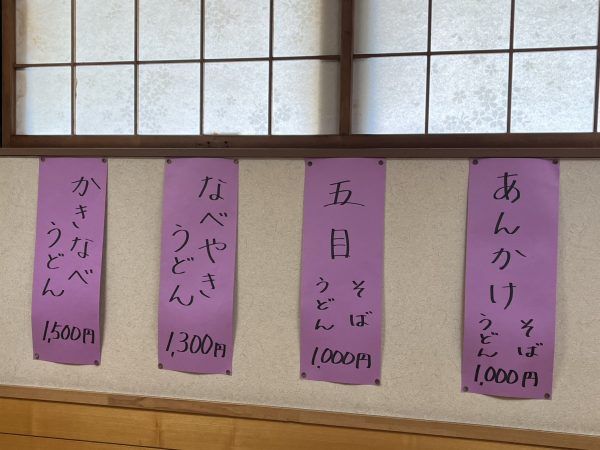 あんかけ
そば
うどん
1,000円
五目
そば
うどん
1,000円
なべやき
うどん
1,300円
かきなべ
うどん
1,500円